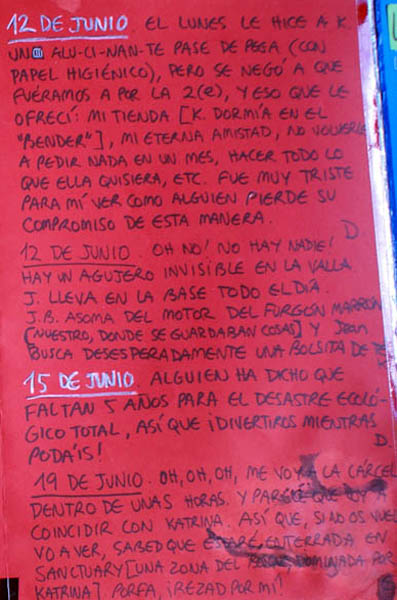 12 DE JUNIO EL LUNES LE HICE A K.
UN ALU-CI-NAN-TE PASE DE PEGA (CON
PAPEL HIGIÉNICO), PERO SE NEGÓ A QUE
FUÉRAMOS A POR LA 2(e), Y ESO QUE LE
OFRECÍ: MI TIENDA [K. DORMÍA EN EL
"BENDER"], MI ETERNA AMISTAD, NO VOLVERLE
A PEDIR NADA EN UN MES, HACER TODO LO
QUE ELLA QUISIERA, ETC. FUE MUY TRISTE
PARA MÍ VER COMO ALGUIEN PIERDE SU
COMPROMISO DE ESTA MANERA.
D
12 DE JUNIO. OH NO! NO HAY NADIE!
HAY UN AGUJERO INVISIBLE EN LA VALLA
J. LLEVA EN LA BASE TODO EL DIA.
J.B. ASOMA DEL MOTOR DEL FURGÓN MARRÓN
[NUESTRO, DONDE SE GUARDABAN COSAS] Y Jean
BUSCA DESESPERADAMENTE UNA BOLSITA DE TE
K
15 DE JUNIO. ALGUIEN HA DICHO QUE
FALTAN 5 AÑOS PARA EL DESASTRE ECOLÓ-
GICO TOTAL, ASÍ QUE ¡DIVERTIROS MIENTRAS
PODÁIS!
D.
19 DE JUNIO. OH, OH, OH, ME VOY A LA CÁRCEL
DENTRO DE UNAS HORAS. Y PARECE QUE VOY A
COINCIDIR CON KATRINA. ASÍ QUE, SI NO OS VUEL
VO A VER, SABED QUE ESTARÉ ENTERRADA EN
SANCTUARY [UNA ZONA DEL BOSQUE DOMINADA POR
KATRINA] PORFA, ¡REZAD POR MI!